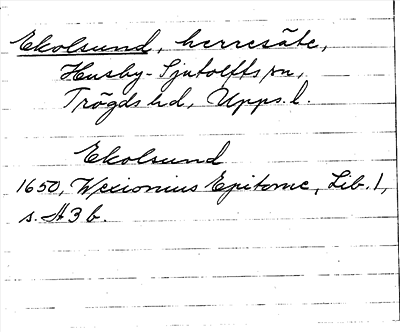 Ekolsund, herresäte,
Husby-Sjutolffts sn,
Trögds hd, Upps. l.
Ekolsund
1650, Wexionius Epitome, Lib. 1,
s. A 3 b.